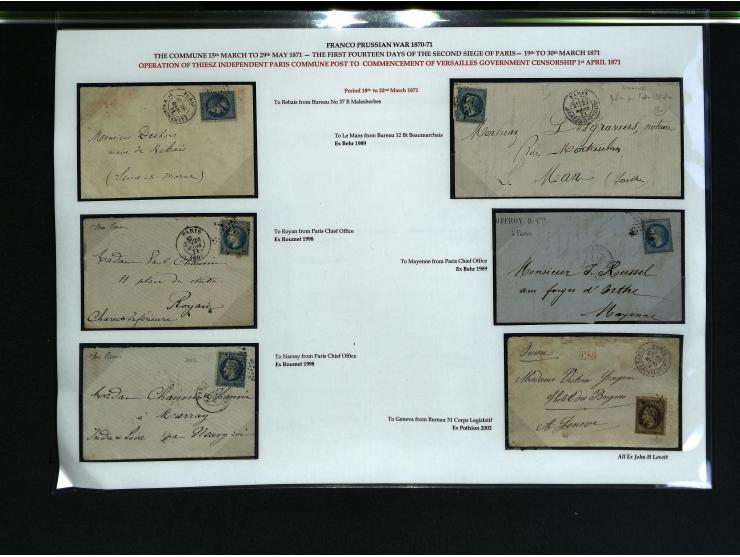 FRANCO PRUSSIAN WAR 1870-71
THE COMMUNE 15th MARCH TO 29th MAY 1871 — THE FIRST FOURTEEN DAYS OF THE SECOND SIEGE OF PARIS — 19th TO 30th MARCH 1871
OPERATION OF THIESZ INDEPENDENT PARIS COMMUNE POST TO COMMENCEMENT OF VERSAILLES GOVERNMENT CENSORSHIP 1st APRIL 1871
Period 18th to 22nd March 1871
To Rebais from Bureau No 37 R Malesherbes
Monsieur Deshors
maire de Rebais
(Seine-&-Marne)
To Le Mans from Bureau 12 Bt Beaumarchais
Ex Behr 1989
PARIS
Monsieur Desgraviers, notaire
Rue Montauban
Le Man (Sarthe
To Royan from Paris Chief Office
Ex Roumet 1998
PARIS
Madame Paul Chauvin
11 place du centre
Royan
Charente inférieure
To Mayenne from Paris Chief Office
Ex Behr 1989
OFFROY D. Cie
à Paris
Monsieur J. Roussel
aux forges d'Orthe
Mayenne
To Narray from Paris Chief Office
Ex Roumet 1998
Madame Chauvin
à Marray
Indre & Loire par Neuvy
To Geneva from Bureau 31 Corps Legislatif
Ex Pothion 2002
Suisse
PD
PARIS
Madame
Hotel des Bergues
A Genève
All Ex John H Levett